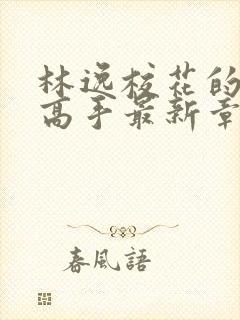 林逸校花的
高手最新章
春風語